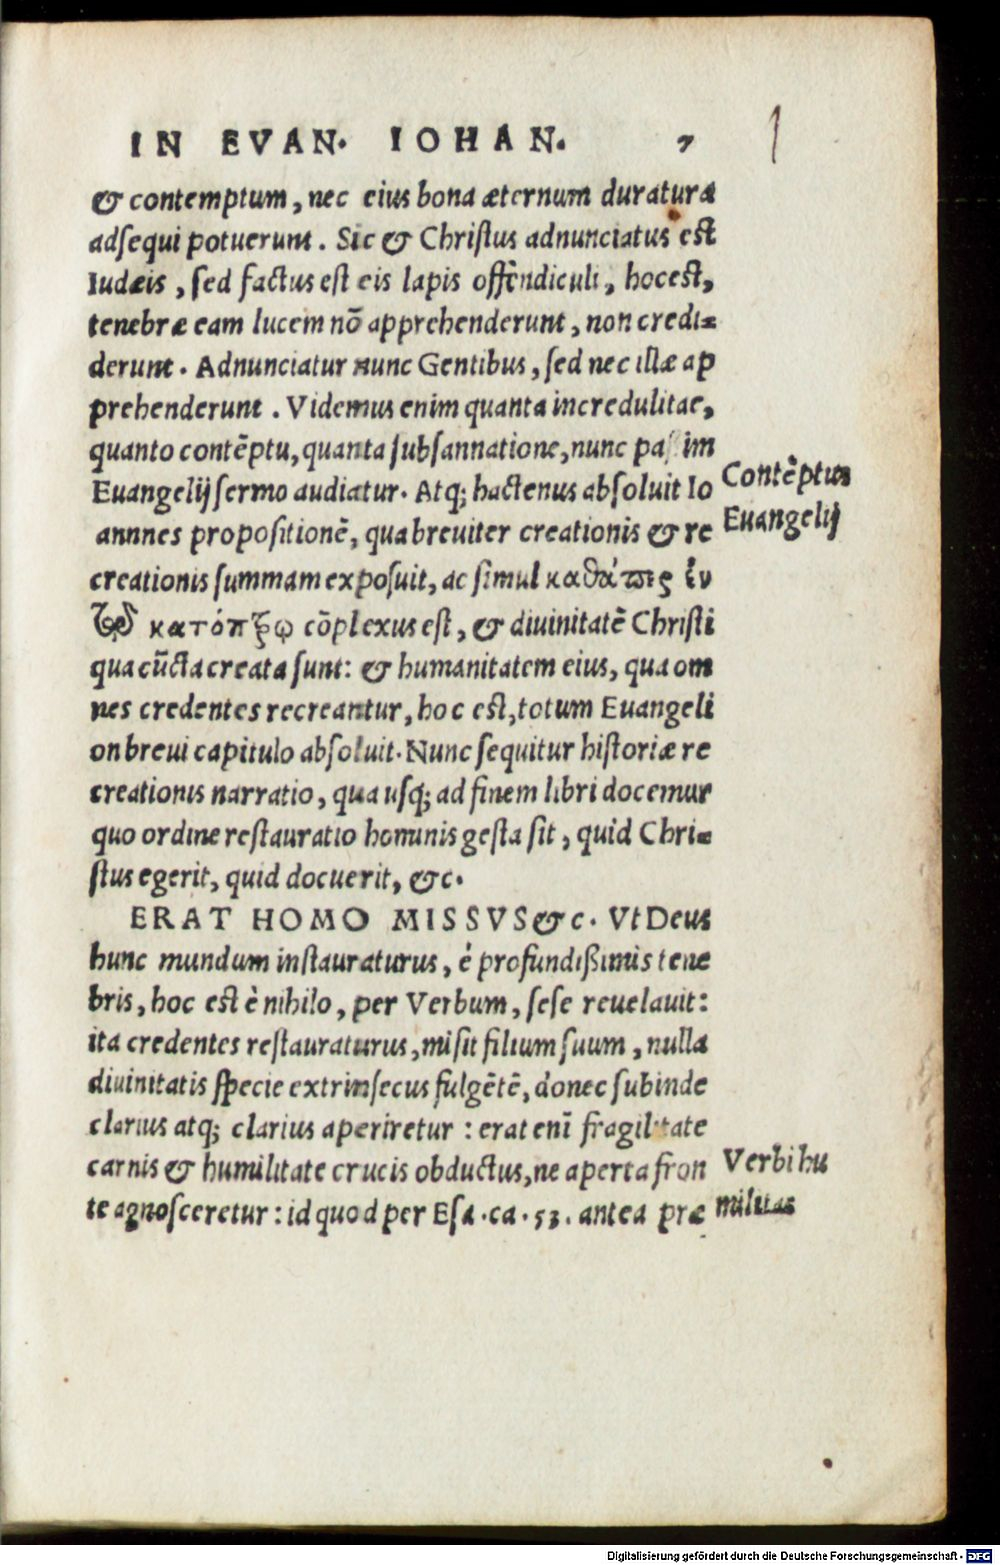 IN EVAN. IOHAN. 7
& contemptum, nec eius bona æternum duratura
adsequi potuerunt. Sic & Christus adnunciatus est
Iudæis, sed factus est eis lapis offendiculi, hocest,
tenebræ eam lucem nõ apprehenderunt, non credi-
derunt. Adnunciatur nunc Gentibus, sed nec illæ ap
prehenderunt. Videmus enim quanta incredulitae,
quanto contẽptu, quanta subsannatione, nunc passim
Euangelij sermo audiatur. Atq; hactenus absoluit Io
Contẽptus
Euangelij
annnes propositionẽ, qua breuiter creationis & re
creationis summam exposuit, ac simul καθάπερ ἐν
τῷ κατόπτρῳ cõplexus est, & diuinitatẽ Christi
qua cũcta creata sunt: & humanitatem eius, qua om
nes credentes recreantur, hoc est, totum Euangeli
on breui capitulo absoluit. Nunc sequitur historiæ re
creationis narratio, qua usq; ad finem libri docemur
quo ordine restauratio hominis gesta sit, quid Chri-
stus egerit, quid docuerit, &c.
ERAT HOMO MISSVS &c. Vt Deus
hunc mundum instauraturus, è profundißimis tene
bris, hoc est è nihilo, per Verbum, sese reuelauit:
ita credentes restauraturus, misit filium suum, nulla
diuinitatis specie extrinsecus fulgẽtẽ, donec subinde
clarius atq; clarius aperiretur: erat enĩ fragilitate
carnis & humilitate crucis obductus, ne aperta fron
te agnosceretur: id quod per Esa. ca. 53. antea præ
Verbi hu
militas
Digitalisierung gefördert durch die Deutsche Forschungsgemeinschaft - DFG